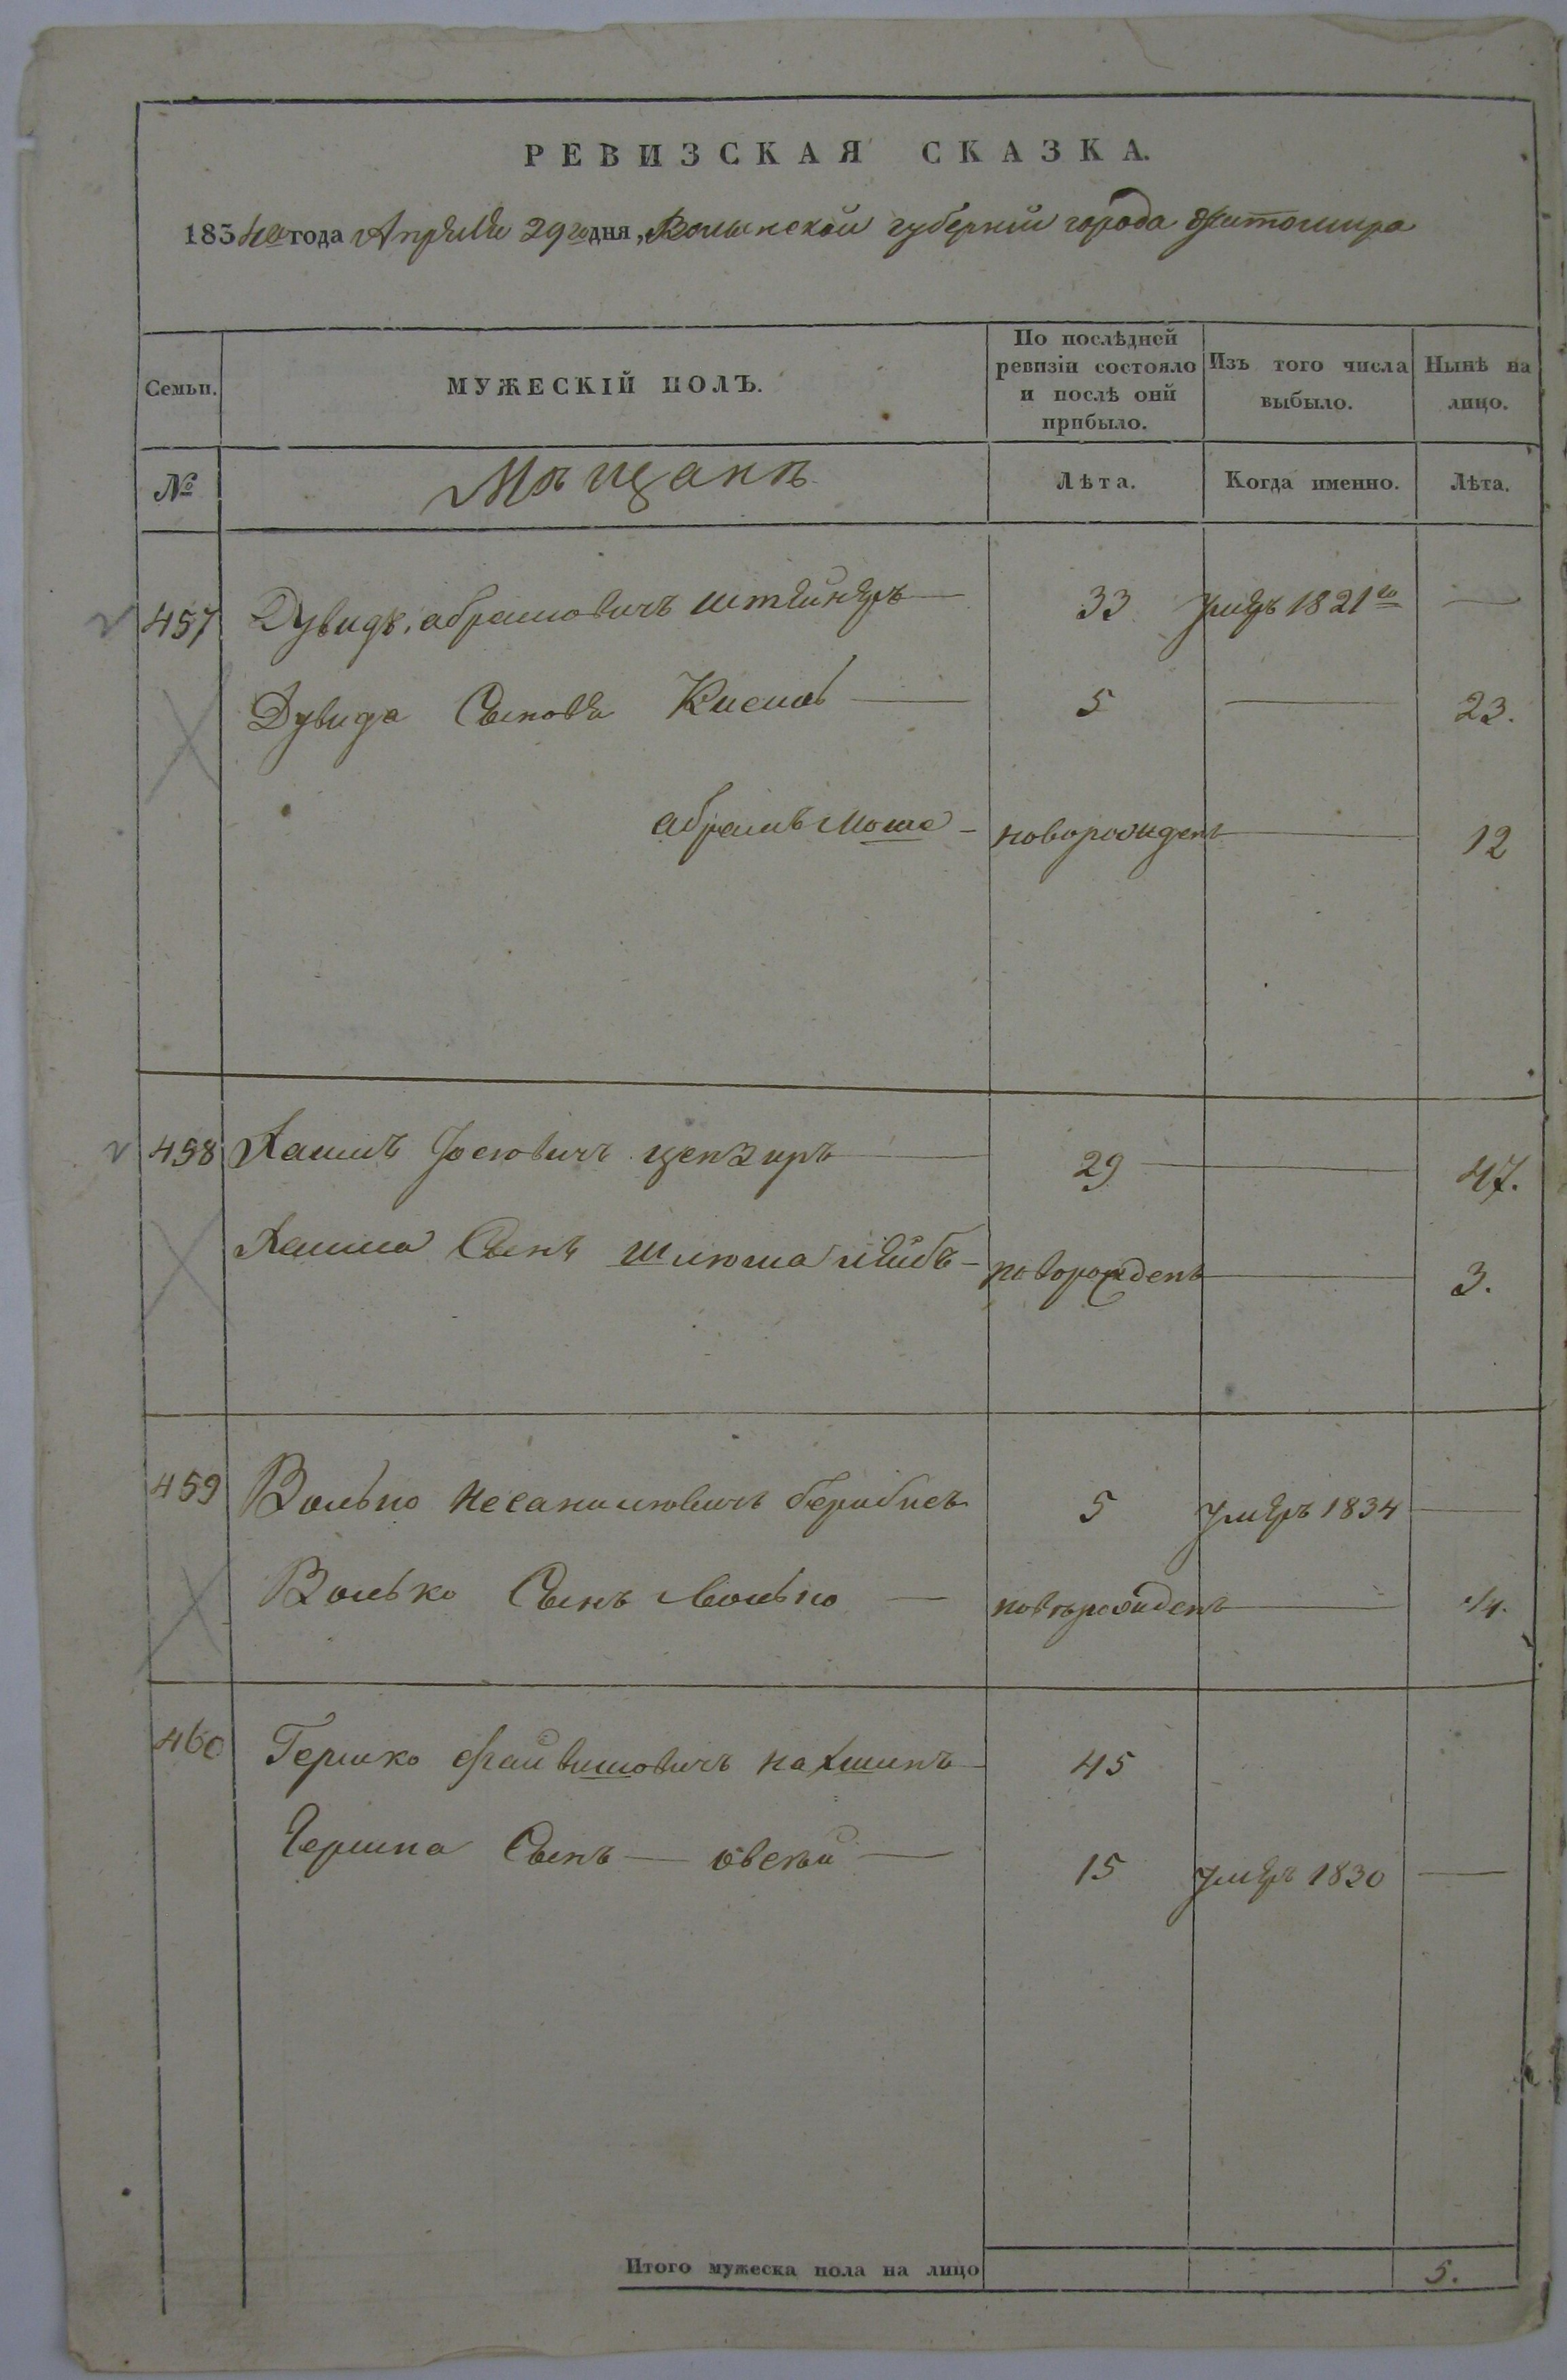 РЕВИЗСКАЯ СКАЗКА.
1834го года Апреля 29го дня, Волынской губернии города Житомира
Семьи.
МУЖЕСКІЙ ПОЛЪ.
По послѣдней ревизіи состояло и послѣ оній прибыло.
Изъ того числа выбыло.
Нынѣ на лицо.
№
Мѣщанѣ
Лѣта.
Когда именно.
Лѣта.
457 Дувидъ абрамовичъ штейнеръ — 33 умеръ 1821го —
Дувида Сынове — 5 — 23.
абрамъ Моше — новорожденъ — 12
458 Хаимъ Иосиовичъ — 29 — 47.
Хаима Сынъ шлюма лейбъ — новорожденъ — 3.
459 Волько 5 умеръ 1834 —
Волько Сынъ — новорожденъ — 1/4.
460 Гершко файвишовичъ — 45
Гершка Сынъ — овсей — 15 умеръ 1830 —
Итого мужеска пола на лицо 5.